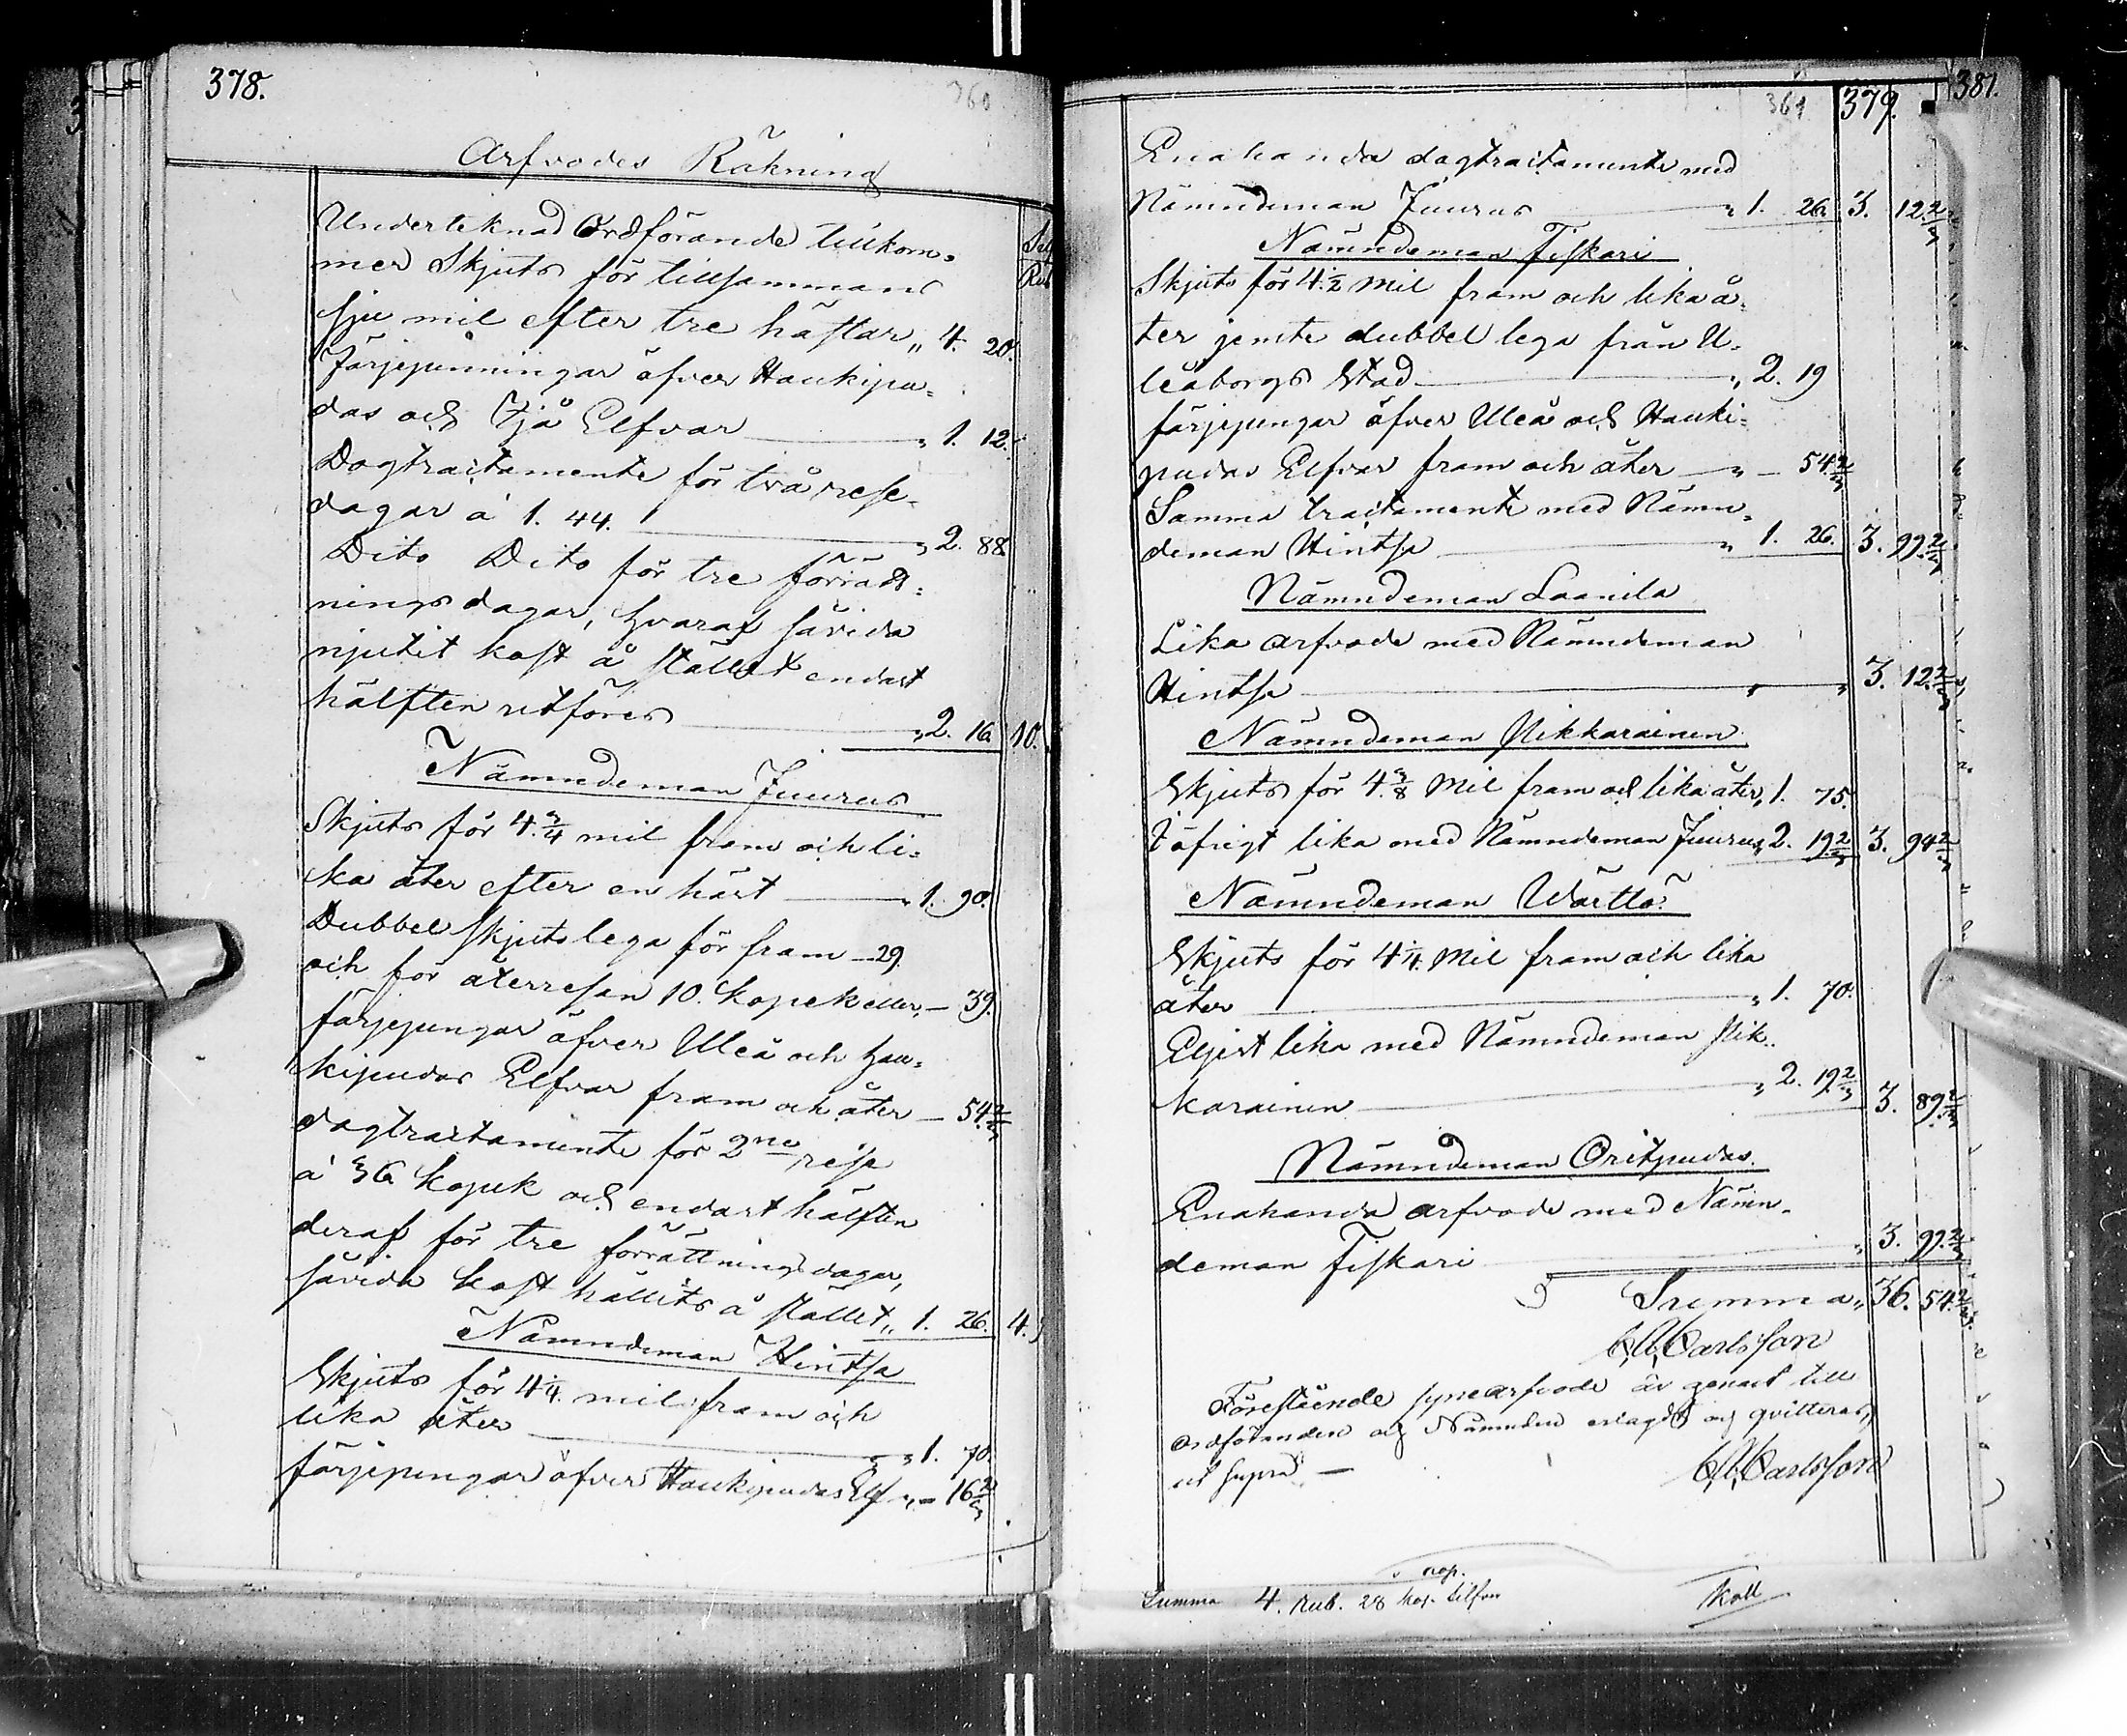 378.
360
Arfvodes Räkning
Undertecknad Ordförande tillkom-
mer Skjuts för tillsammans
sju mil efter tre hästar „ 4. 20.
Färjepenningar öfver Haukipu-
das och Ijå Elfvar „ 1. 12.
Dagtractamente för två rese-
dagar á 1. 44. „ 2. 88
Dito Dito för tre förrätt-
ningsdagar, hvaraf såvida
njutit kost å stället endast
hälften utföres „ 2. 16. 10.
Nämndeman Juurus
Skjuts för 4.3/4 mil fram och li-
ka åter efter en häst „ 1. 90.
Dubbel skjutslega för fram — 29.
och för återresan 10. kopek eller, — 39.
färjepengar öfver Uleå och Hau-
kipudas Elfvar fram och åter — 54 2/3
dagtractamente för 2ne rese
á 36 kopek och endast hälften
deraf för tre förrättningsdagar,
såvida kost hållits å stället „ 1. 26. 4.
Nämndeman Hintsa
Skjuts för 4 1/4. mil fram och
lika åter „ 1. 70
färjepengar öfver Haukipudas Elf „ — 16 2/3
361
379.
381.
Enahanda dagtractamente med
Nämndeman Juurus „ 1. 26. 3. 12. 2/3
Nämndeman Fiskari
Skjuts för 4. 1/2 mil fram och lika å-
ter jemte dubbel lega från U-
leåborgs Stad „ 2. 19
färjepengar öfver Uleå och Hauki-
pudas Elfvar fram och åter „ — 54 2/3
Samma tractamente med Nämn-
deman Hintsa „ 1. 26. 3. 99. 2/3
Nämndeman Laanila
Lika arfvode med Nämndeman
Hintsa „ 3. 12. 2/3
Nämndeman Nikkarainen
Skjuts för 4. 3/8 mil fram och lika åter, 1. 75.
I öfrigt lika med Nämndeman Juurus, 2. 19 2/3 3. 94 2/3
Nämndeman Warttö
Skjuts för 4 1/4. mil fram och lika
åter „ 1. 70.
Eljest lika med Nämndeman Nik-
karainen „ 2. 19 2/3 3. 89. 2/3
Nämndeman Oritpudas.
Enahanda arfvode med Nämn-
deman Fiskari „ 3. 99. 2/3
Summa „ 36. 54. 2/3
C. A. Carlsson
Förestående synearfvode är genast till
ordföranden och Nämnden erlagdt och qvitteras,
ut supra —
C. A. Carlsson
Summa 4. Rub. 28 kop. silfver